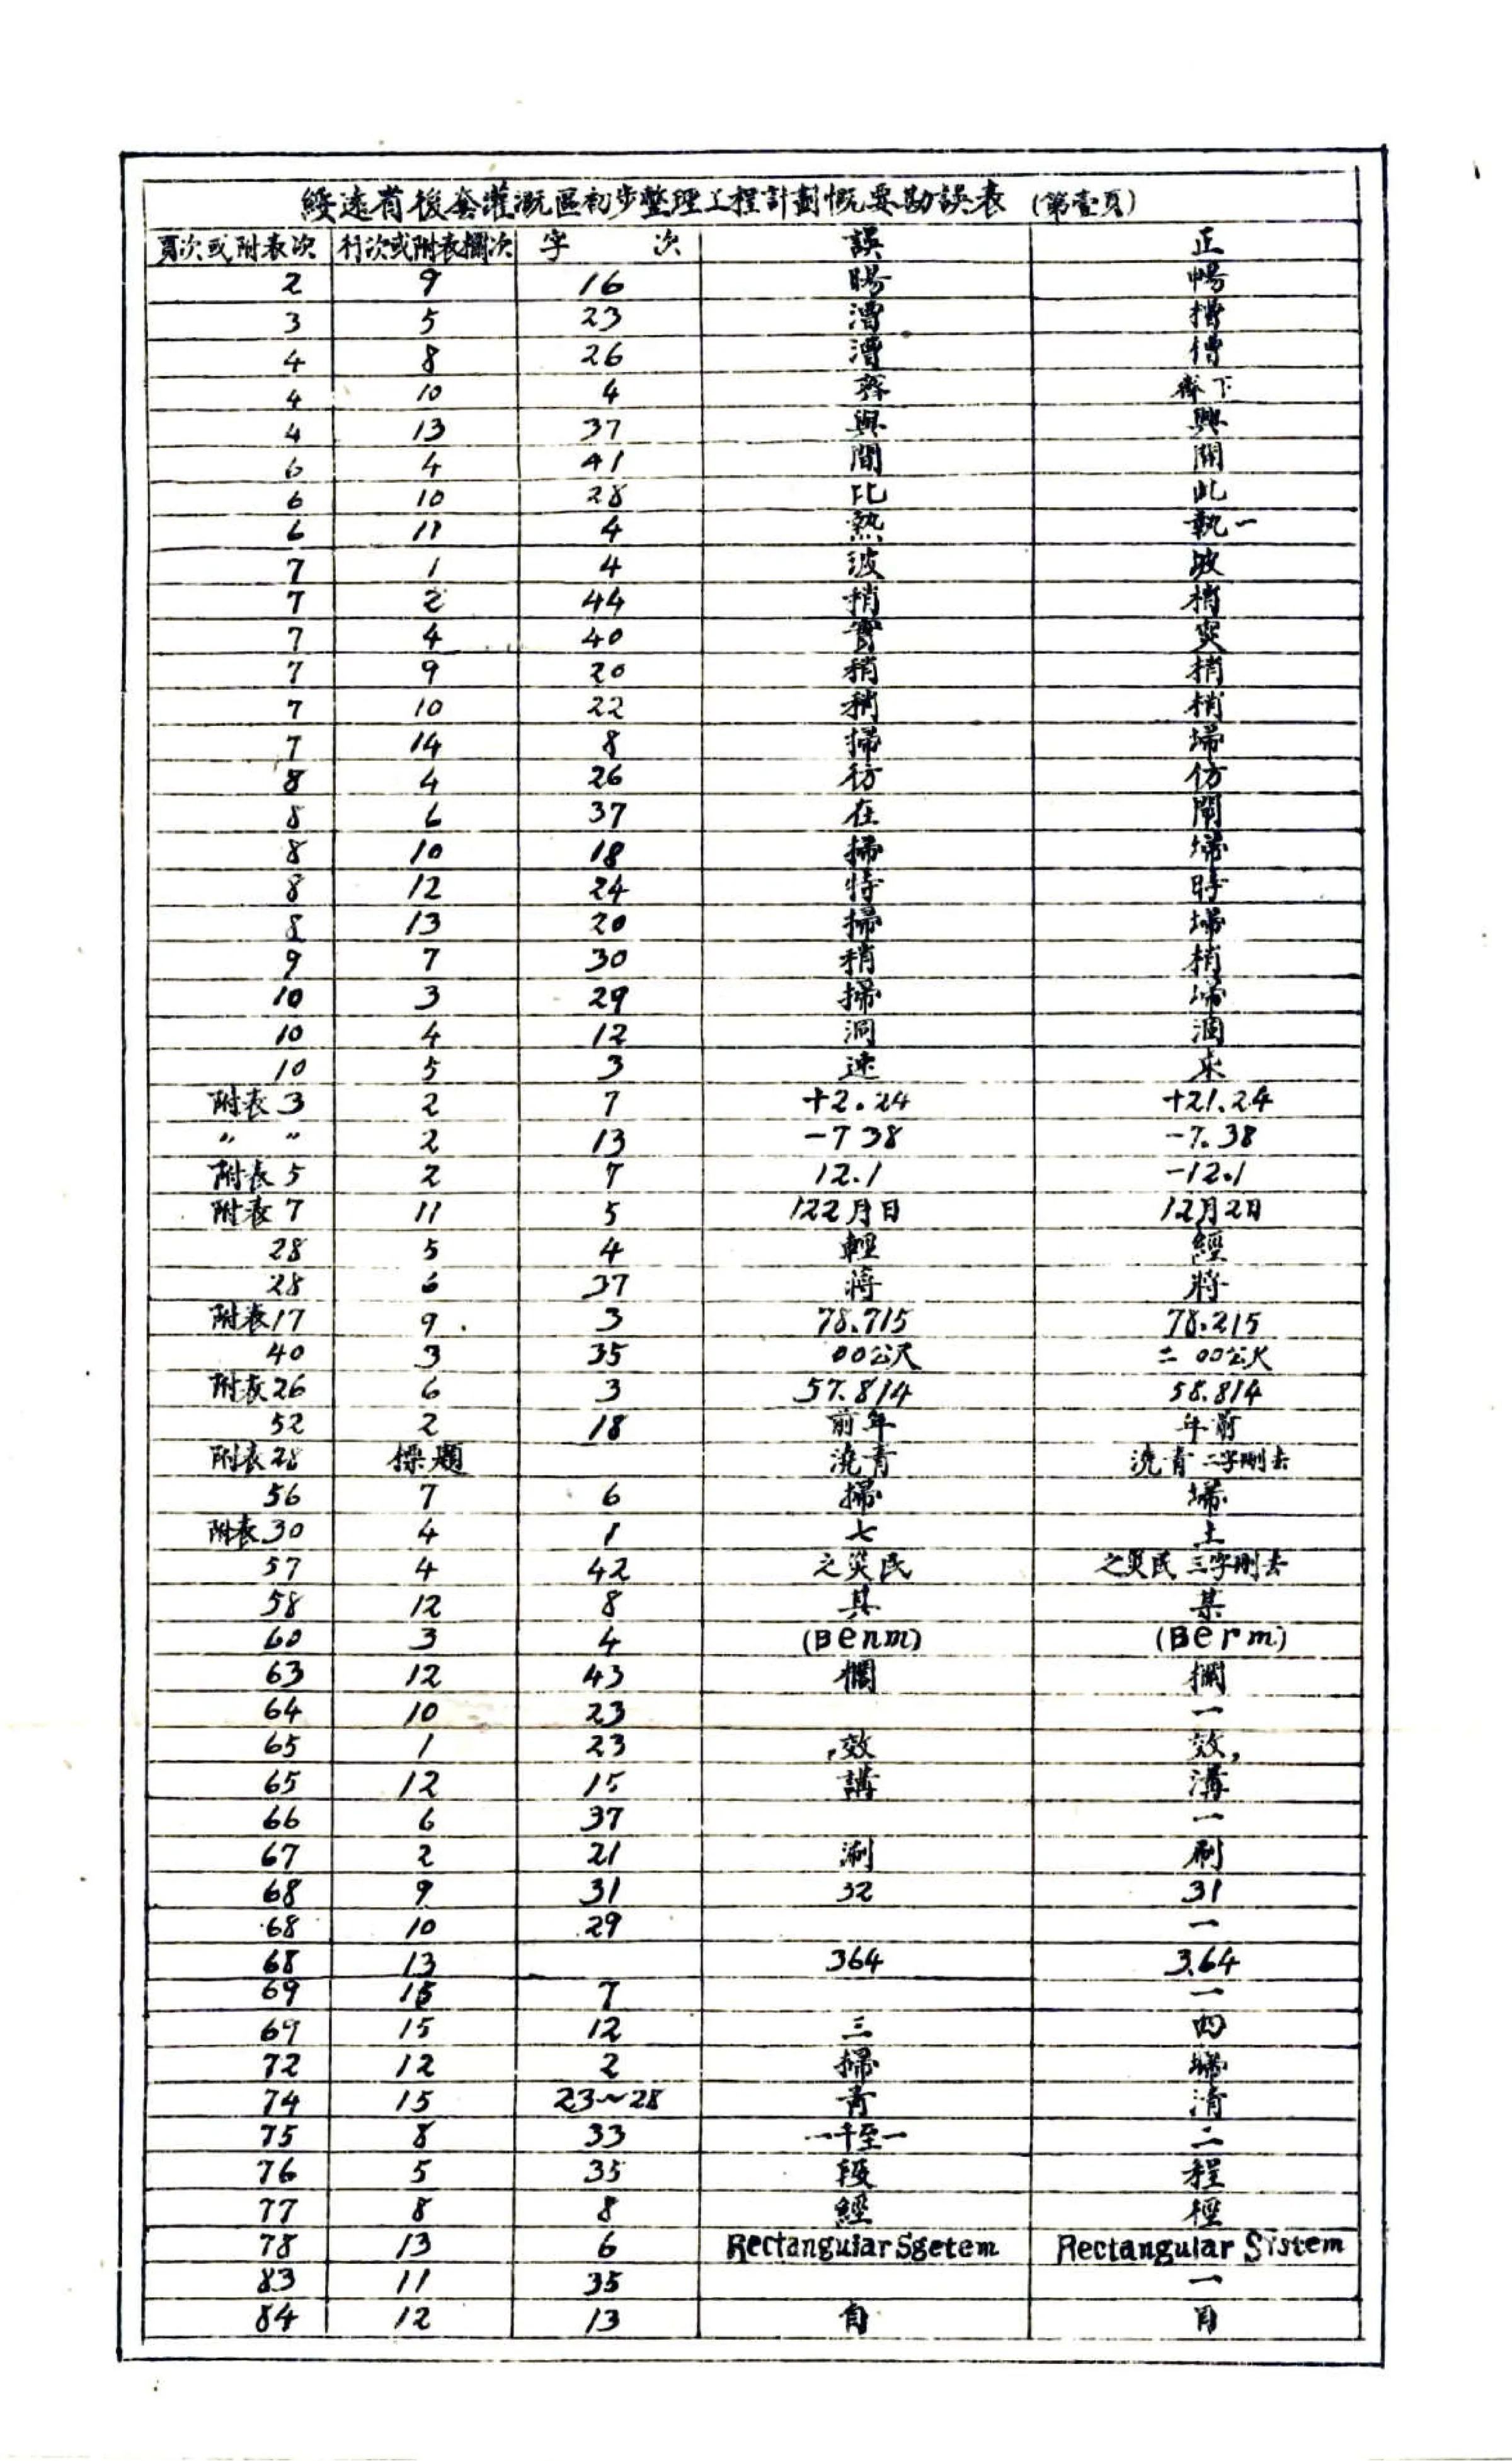 綏遠省後套灌溉區初步整理工程計劃慨要勘誤表 (第壹頁)
頁次或附表次 行次或附表欄次 字次 誤 正
2 9 16 暘 暢
3 5 23 漕 槽
4 8 26 漕 僧
4 10 4 齊 齊下
4 13 37 與 興
6 4 41 間 開
6 10 28 比 此
6 11 4 熱 執一
7 1 4 波 坡
7 2 44 捎 梢
7 4 40 實 突
7 9 20 稍 梢
7 10 22 稍 梢
7 14 8 掃 埽
8 4 26 彷 仿
8 6 37 在 閘
8 10 18 掃 埽
8 12 24 特 時
8 13 20 掃 埽
9 7 30 稍 梢
10 3 29 掃 埽
10 4 12 洞 涸
10 5 3 速 來
附表3 2 7 +2.24 +21.24
〃 〃 2 13 -7 38 -7.38
附表5 2 7 12.1 -12.1
附表7 11 5 122月日 12月2日
28 5 4 輕 經
28 6 37 蔣 將
附表17 9 3 78.715 78.215
40 3 35 00公尺 二00公尺
附表26 6 3 57.814 58.814
52 2 18 前年 年前
附表28 標題 澆青 澆青二字刪去
56 7 6 掃 埽
附表30 4 1 七 土
57 4 42 之災民 之災民三字刪去
58 12 8 其 某
60 3 4 (Benm) (Berm)
63 12 43 欄 攔
64 10 23 一
65 1 23 ,效 效,
65 12 15 講 溝
66 6 37 一
67 2 21 涮 刷
68 9 31 32 31
68 10 29 一
68 13 364 3.64
69 15 7 一
69 15 12 三 四
72 12 2 掃 埽
74 15 23~28 青 清
75 8 33 一千至一 二
76 5 35 段 程
77 8 8 經 徑
78 13 6 Rectangular Sgetem Rectangular Sistem
83 11 35 一
84 12 13